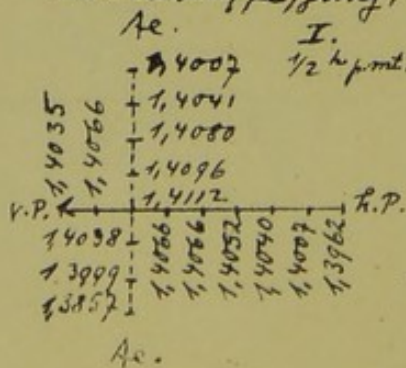 Ae.
I.
1,4007
1/2 h p.mt.
1,4041
1,4080
1,4096
1,4112
1,4035
1,4066
v.P.
h.P.
1,4038
1,3999
1,3857
1,4066
1,4066
1,4052
1,4040
1,4007
1,3962
Ae.